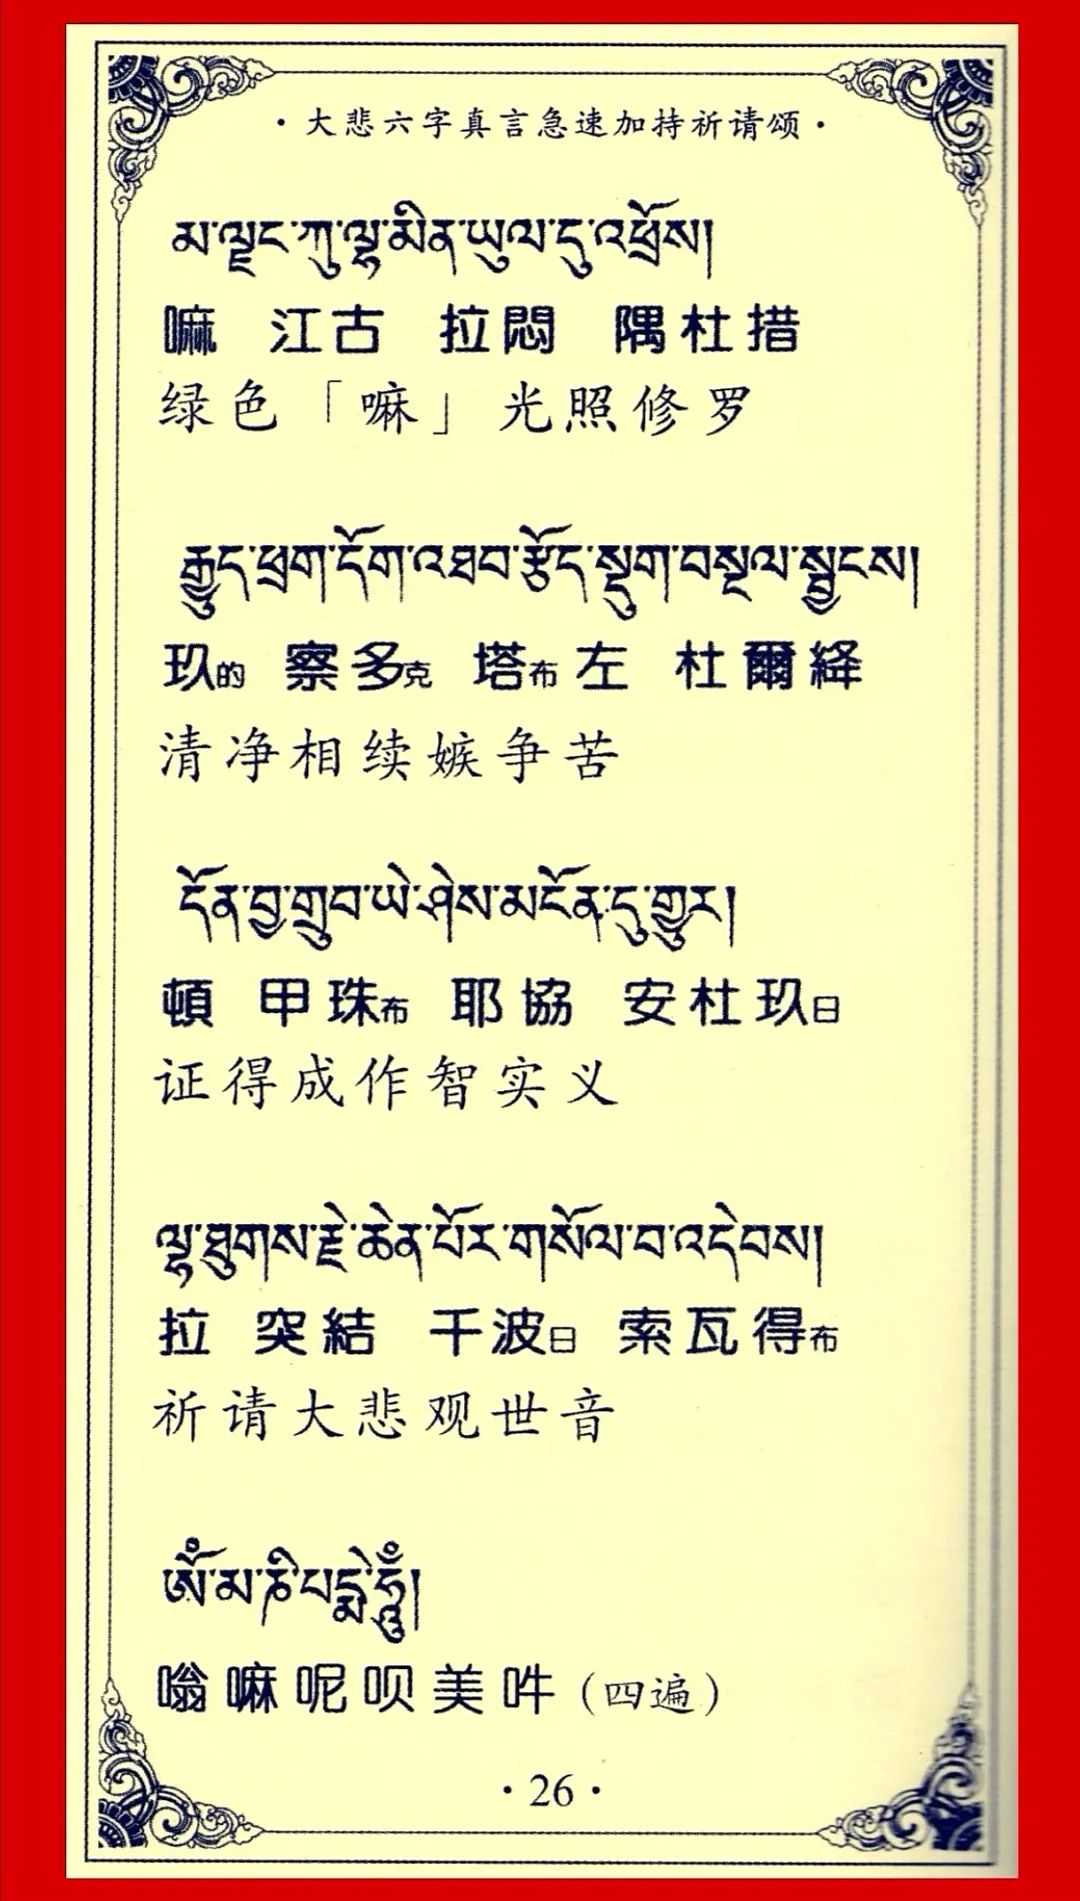 ·大悲六字真言急速加持祈请颂·
མ་ལྗང་ཀུ་ལྷ་མིན་ཡུལ་དུ་འཕྲོས།
嘛 江古 拉悶 隅杜措
绿色「嘛」光照修罗
རྒྱུད་ཕྲག་དོག་འཐབ་རྩོད་སྡུག་བསྔལ་སྦྱངས།
玖的 察多克 塔布左 杜爾絳
清净相续嫉争苦
དོན་བྱ་གྲུབ་ཡེ་ཤེས་མངོན་དུ་གྱུར།
頓 甲珠布 耶協 安杜玖日
证得成作智实义
ལྷ་ཐུགས་རྗེ་ཆེན་པོར་གསོལ་བ་འདེབས།
拉 突結 千波日 索瓦得布
祈请大悲观世音
ༀ་མ་ཎི་པདྨེ་ཧཱུྃ།
嗡嘛呢呗美吽（四遍）
·26·